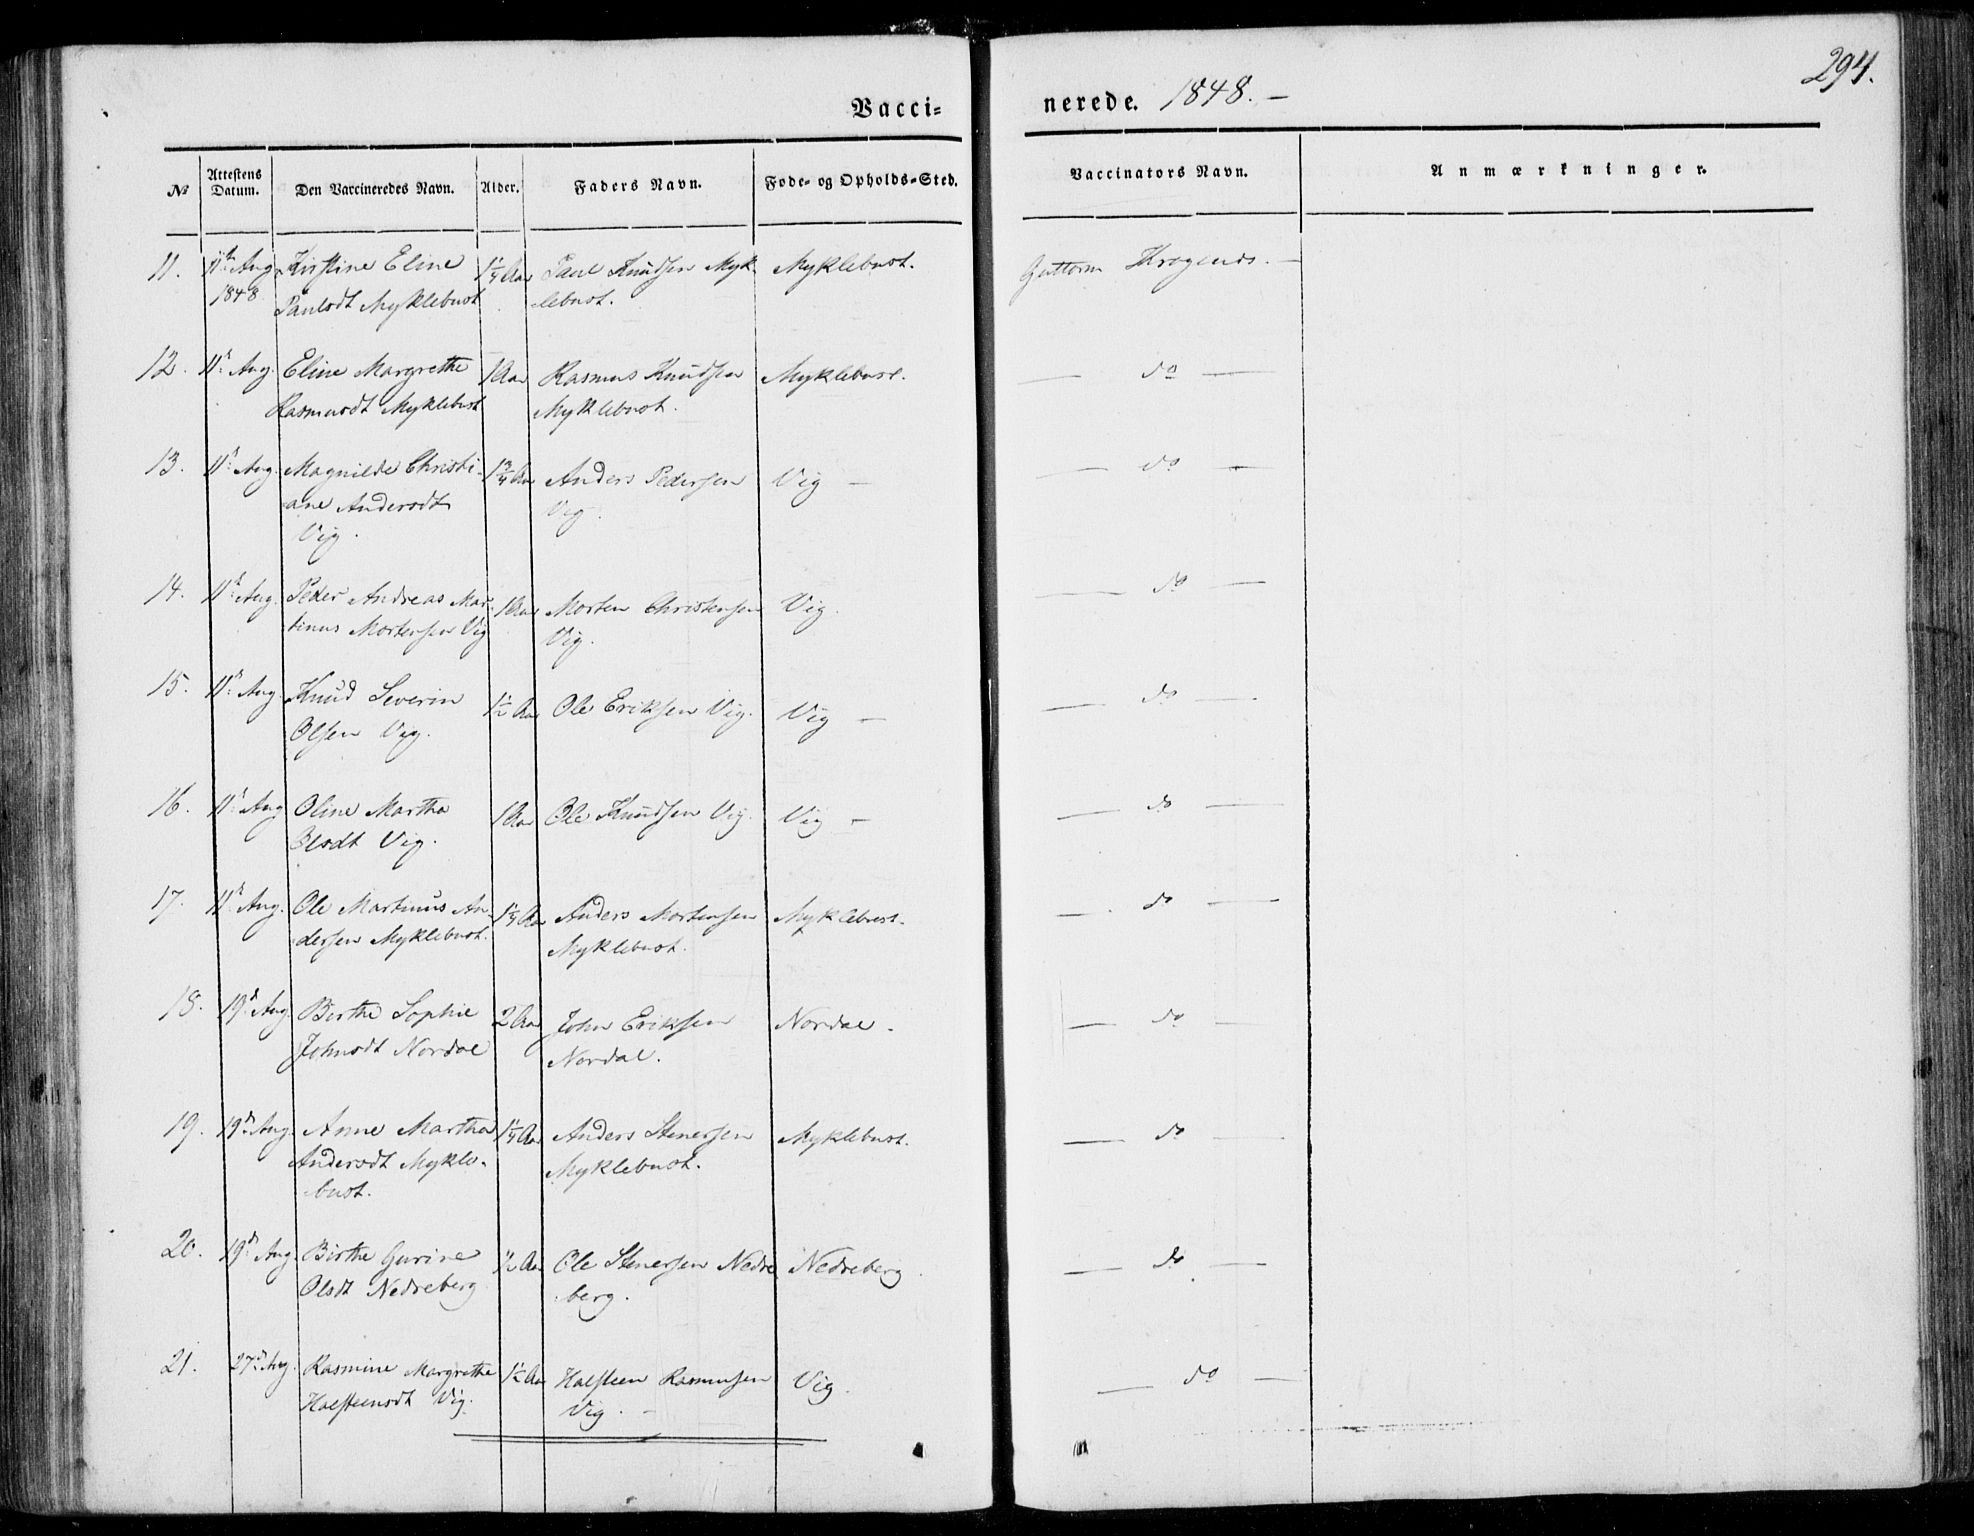 294.
Vacci=
nerede. 1848. –
No
Attestens Datum.
Den Vaccineredes Navn.
Alder.
Faders Navn.
Føde- og Opholds-Sted.
Vaccinators Navn.
Anmærkninger.
11. 11te Aug. Kirstine Eline 1 1/4 Aar Paul Knudsen Myk- Myklebust. Guttorm
1848 Paulsdt Myklebust lebust.
12. 11te Aug. Eline Margrethe 1 Aar Rasmus Knudsen Myklebust. — do —
Rasmusdt Myklebust Myklebust.
13. 11te Aug. Magnilde Christi- 1 3/4 Aar Anders Pedersen Vig — — do —
ane Andersdt Vig.
Vig.
14. 11te Aug. Peder Andreas Mar- 1 Aar Morten Christensen Vig. — do —
tinus Mortensen Vig Vig.
15. 11te Aug. Knud Severin 1 1/2 Aar Ole Eriksen Vig. Vig — — do —
Olsen Vig.
16. 11te Aug Oline Martha 1 Aar Ole Knudsen Vig. Vig — — do —
Olsdt Vig.
17. 11te Aug. Ole Martinus An- 1 1/4 Aar Anders Mortensen Myklebust. — do —
dersen Myklebust. Myklebust.
18. 19de Aug Birthe Sophie 2 Aar John Eriksen Nordal. — do —
Johnsdt Nordal Nordal.
19. 19de Aug. Anne Martha 1 1/4 Aar Anders Stenersen Myklebust. — do —
Andersdt Mykle- Myklebust.
bust.
20. 19de Aug Birthe Gurine 1/2 Aar Ole Stenersen Nedre Nedreberg — do —
Olsdt Nedreberg berg.
21. 27de Aug. Rasmine Margrethe 1 1/2 Aar Halsteen Rasmusen Vig. — do —
Halsteensdt Vig. Vig. —